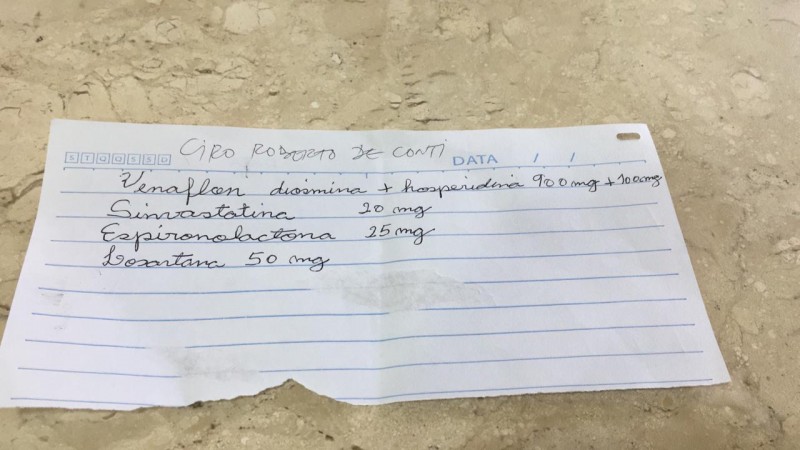 STQQSSD CIRO ROBERTO DE CONTI DATA / /
Venaflon diosmina + hosperidina 900 mg + 100 mg
Sinvastatina 20 mg
Espironolactona 25 mg
Losartana 50 mg